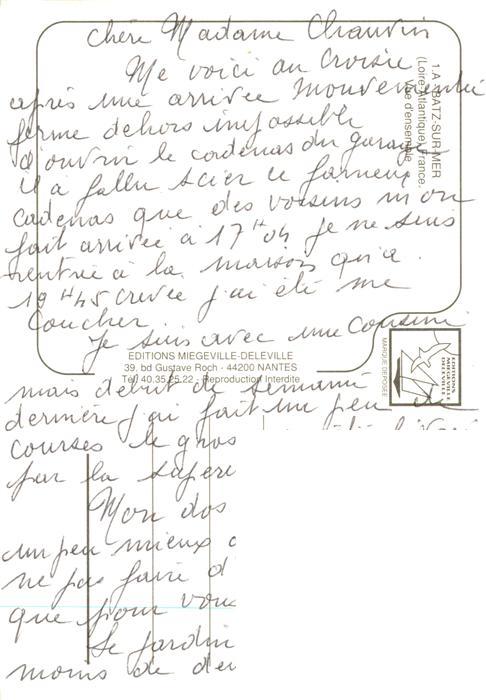 Chère Madame Chauvin
Me voici au Croisic
après une arrivée mouvementée
ferme dehors impossible
d'ouvrir le cadenas du garage
il a fallu scier ce fameux
cadenas que des voisins m'on
fait arrivée à 17 H 04 je ne suis
rentrée à la maison qu'a
19 H 45 crevée j'ai été me
coucher
Je suis avec une cousine
mais début de semaine
dernière j'ai fait un peu de
courses le gros
par la
Mon dos
un peu mieux
ne pas faire d
que pour vous
Le jardin
moins de de
1.A - BATZ-SUR-MER
(Loire-Atlantique) France.
Vue d'ensemble
EDITIONS MIEGEVILLE-DELEVILLE
39, bd Gustave Roch - 44200 NANTES
Tél. 40.35.25.22 - Reproduction Interdite
MARQUE DÉPOSÉE
EDITIONS
MIEGEVILLE
DELEVILLE